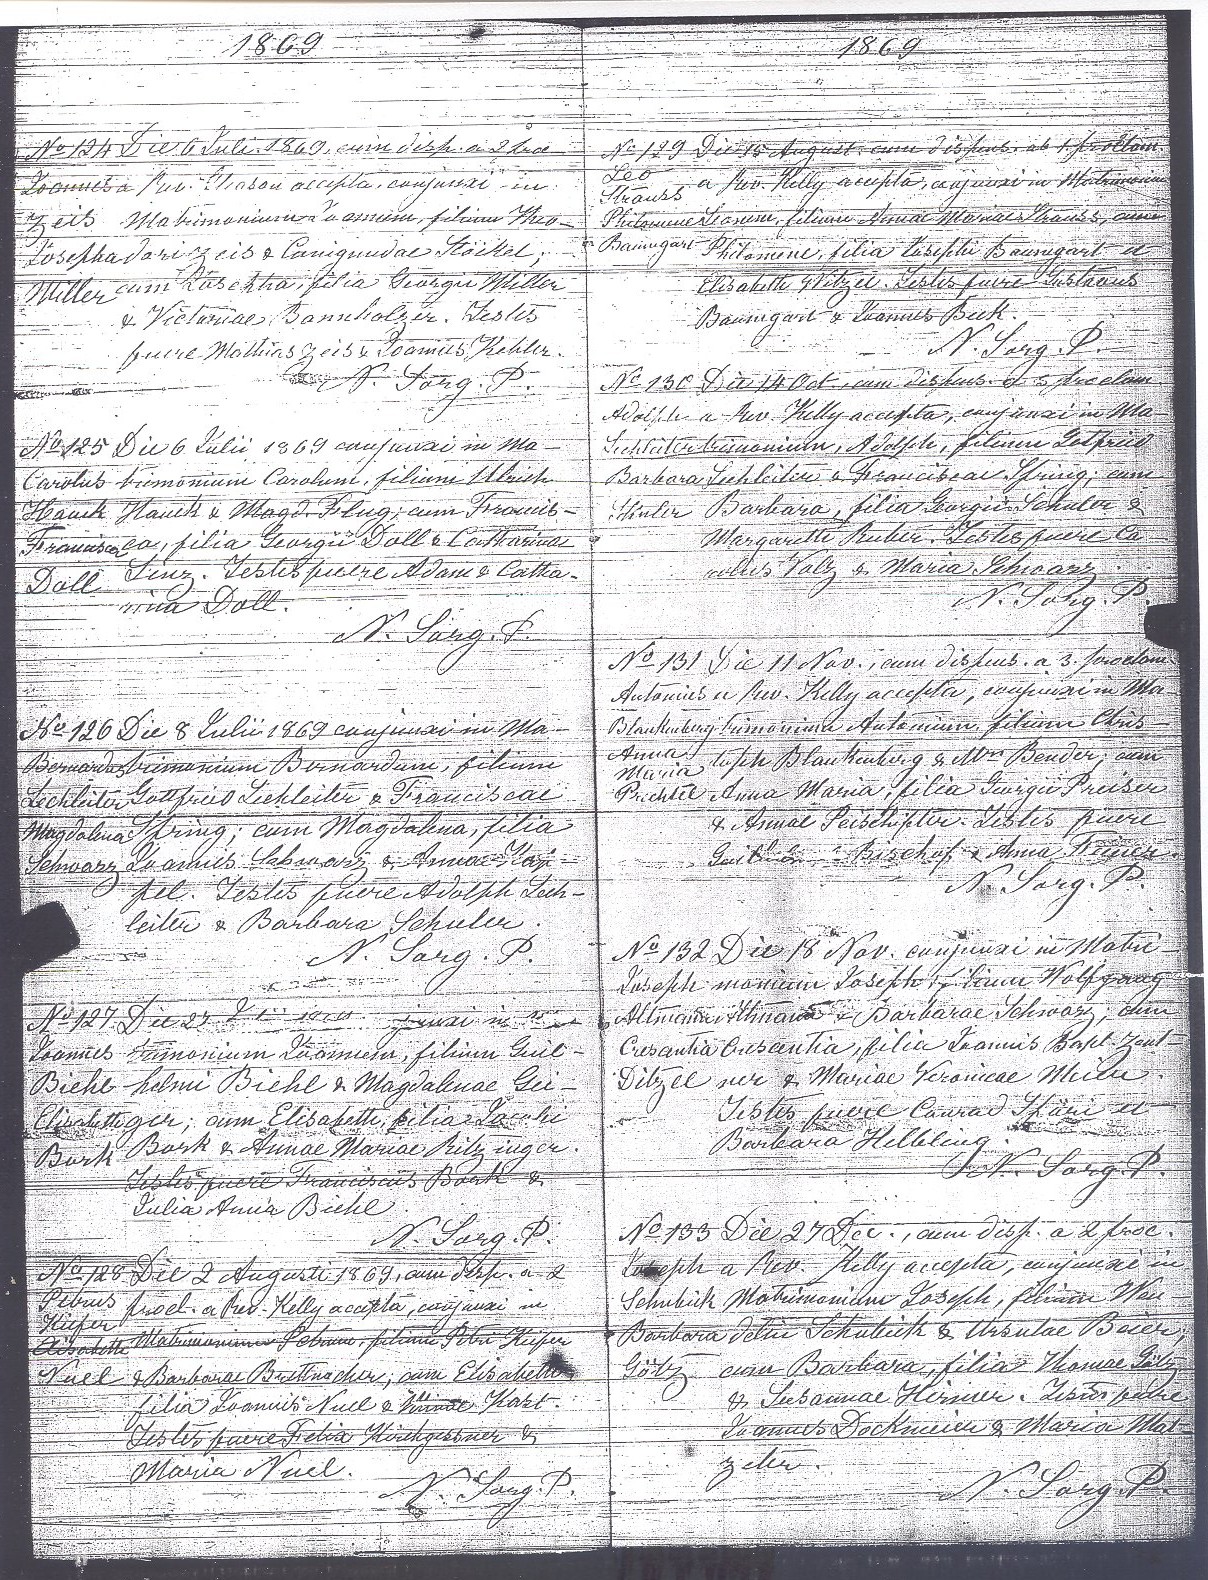 1869
No 124 Die 6 Juli. 1869. cum disp. a 2
Joannes a Rev. accepta, conjunxi in
Zeis Matrimonium Joannem, filium Theo-
Josepha dori Zeis & Cunigundae Stöckel;
Miller cum Josepha, filia Georgii Miller
& Victoriae Bannholzer. Testes
fuere Mathias Zeis & Joannes Kehler.
N. Sorg. P.
No 125 Die 6 Julii 1869 conjunxi in Ma-
Carolus trimonium Carolum, filium Ulrich
Hauck Hauck & Magd. Flug; cum Francis-
Francisca ca, filia Georgii Doll & Catharinae
Doll Linz. Testes fuere Adam & Catha-
rina Doll.
N. Sorg. P.
No 126 Die 8 Julii 1869 conjunxi in Ma-
Bernardus trimonium Bernardum, filium
Lechleiter Gottfried Lechleiter & Franciscae
Magdalena Spring; cum Magdalena, filia
Schwarz Joannis Schwarz & Annae
pel. Testes fuere Adolph Lech-
leiter & Barbara Schuler.
N. Sorg. P.
No 127 Die 27 in
Joannes trimonium Joannem, filium Guil-
Biehl helmi Biehl & Magdalenae Gei-
Elisabeth ger; cum Elisabeth, filia Jacobi
Bork Bork & Annae Mariae Ritzinger.
Testes fuere Franciscus Bork &
Julia Anna Biehl
N. Sorg. P.
No 128 Die 2 Augusti 1869, cum disp. a 2
Petrus procl. a Rev. Kelly accepta, conjunxi in
Kiefer
Elisabeth Matrimonium Petrum, filium Petri Kiefer
Nuel & Barbarae Brettnacher; cum Elisabetha
filia Joannis Nuel & Kast.
Testes fuere Felix Kirchgessner &
Maria Nuel.
N. Sorg. P.
1869
No 129 Die 15 August. cum dispens. ab 1. proclam.
Leo a Rev. Kelly accepta, conjunxi in Matrimonium
Strauss
Philomene Leonem, filium Annae Mariae Strauss, cum
Baumgart Philomene, filia Josephi Baumgart et
Elisabeth Witzel. Testes fuere Gustavus
Baumgart & Joannes Beck.
N. Sorg. P.
No 130 Die 14 Oct., cum dispens. a 3 proclam
Adolph a Rev. Kelly accepta, conjunxi in Ma-
Lechleiter trimonium, Adolph, filium Gotfried
Barbara Lechleiter & Franciscae Spring; cum
Shuler Barbara, filia Georgii Schuler &
Margareth Ruber. Testes fuere Ca-
rolus Volz & Maria Schwarz.
N. Sorg. P.
No 131 Die 11 Nov., cum dispens. a 3. proclam
Antonius a Rev. Kelly accepta, conjunxi in Ma
Blankenberg trimonium Antonium, filium Chris-
Anna toph Blankenberg & Bender; cum
Maria
Anna Maria, filia Georgii Preiser
& Annae. Testes fuere
Bischof & Anna
N. Sorg. P.
No 132 Die 18 Nov. conjunxi in Matri-
Joseph monium Joseph, filium Wolfgang
Altmann Altmann & Barbarae Schwarz; cum
Crescentia Crescentia, filia Joannis Bapt. Zent-
Ditzel ner & Mariae Veronicae
Testes fuere Conrad et
Barbara Helbling.
N. Sorg. P.
No 133 Die 27 Dec., cum disp. a 2 proc.
Joseph a Rev. Kelly accepta, conjunxi in
Schubick Matrimonium Joseph, filium Wen
Barbara delin Schubick & Ursulae Baier,
Götz cum Barbara, filia Thomae Götz
& Susannae Hirner. Testes fuere
Joannes Dockmeier & Maria Mat-
zeter.
N. Sorg. P.